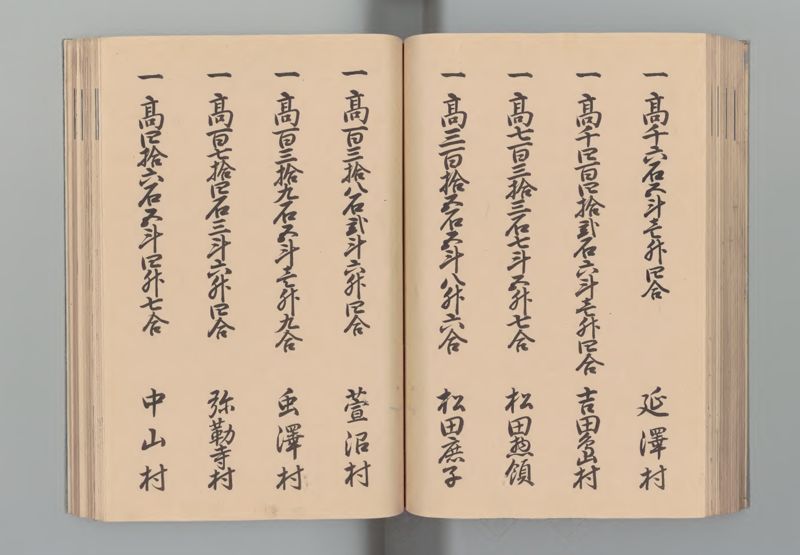 一 髙千六石五斗壱升四合 延澤村
一 髙千四百四拾弐石六斗壱升四合 吉田嶋村
一 髙七百三拾三石七斗五升七合 松田惣領
一 髙三百拾五石五斗八升六合 松田庶子
一 髙百三拾八石弐斗六升四合 萱沼村
一 髙百三拾九石五斗壱升九合 虫澤村
一 髙百七拾四石三斗六升四合 弥勒寺村
一 髙四拾六石五斗四升七合 中山村